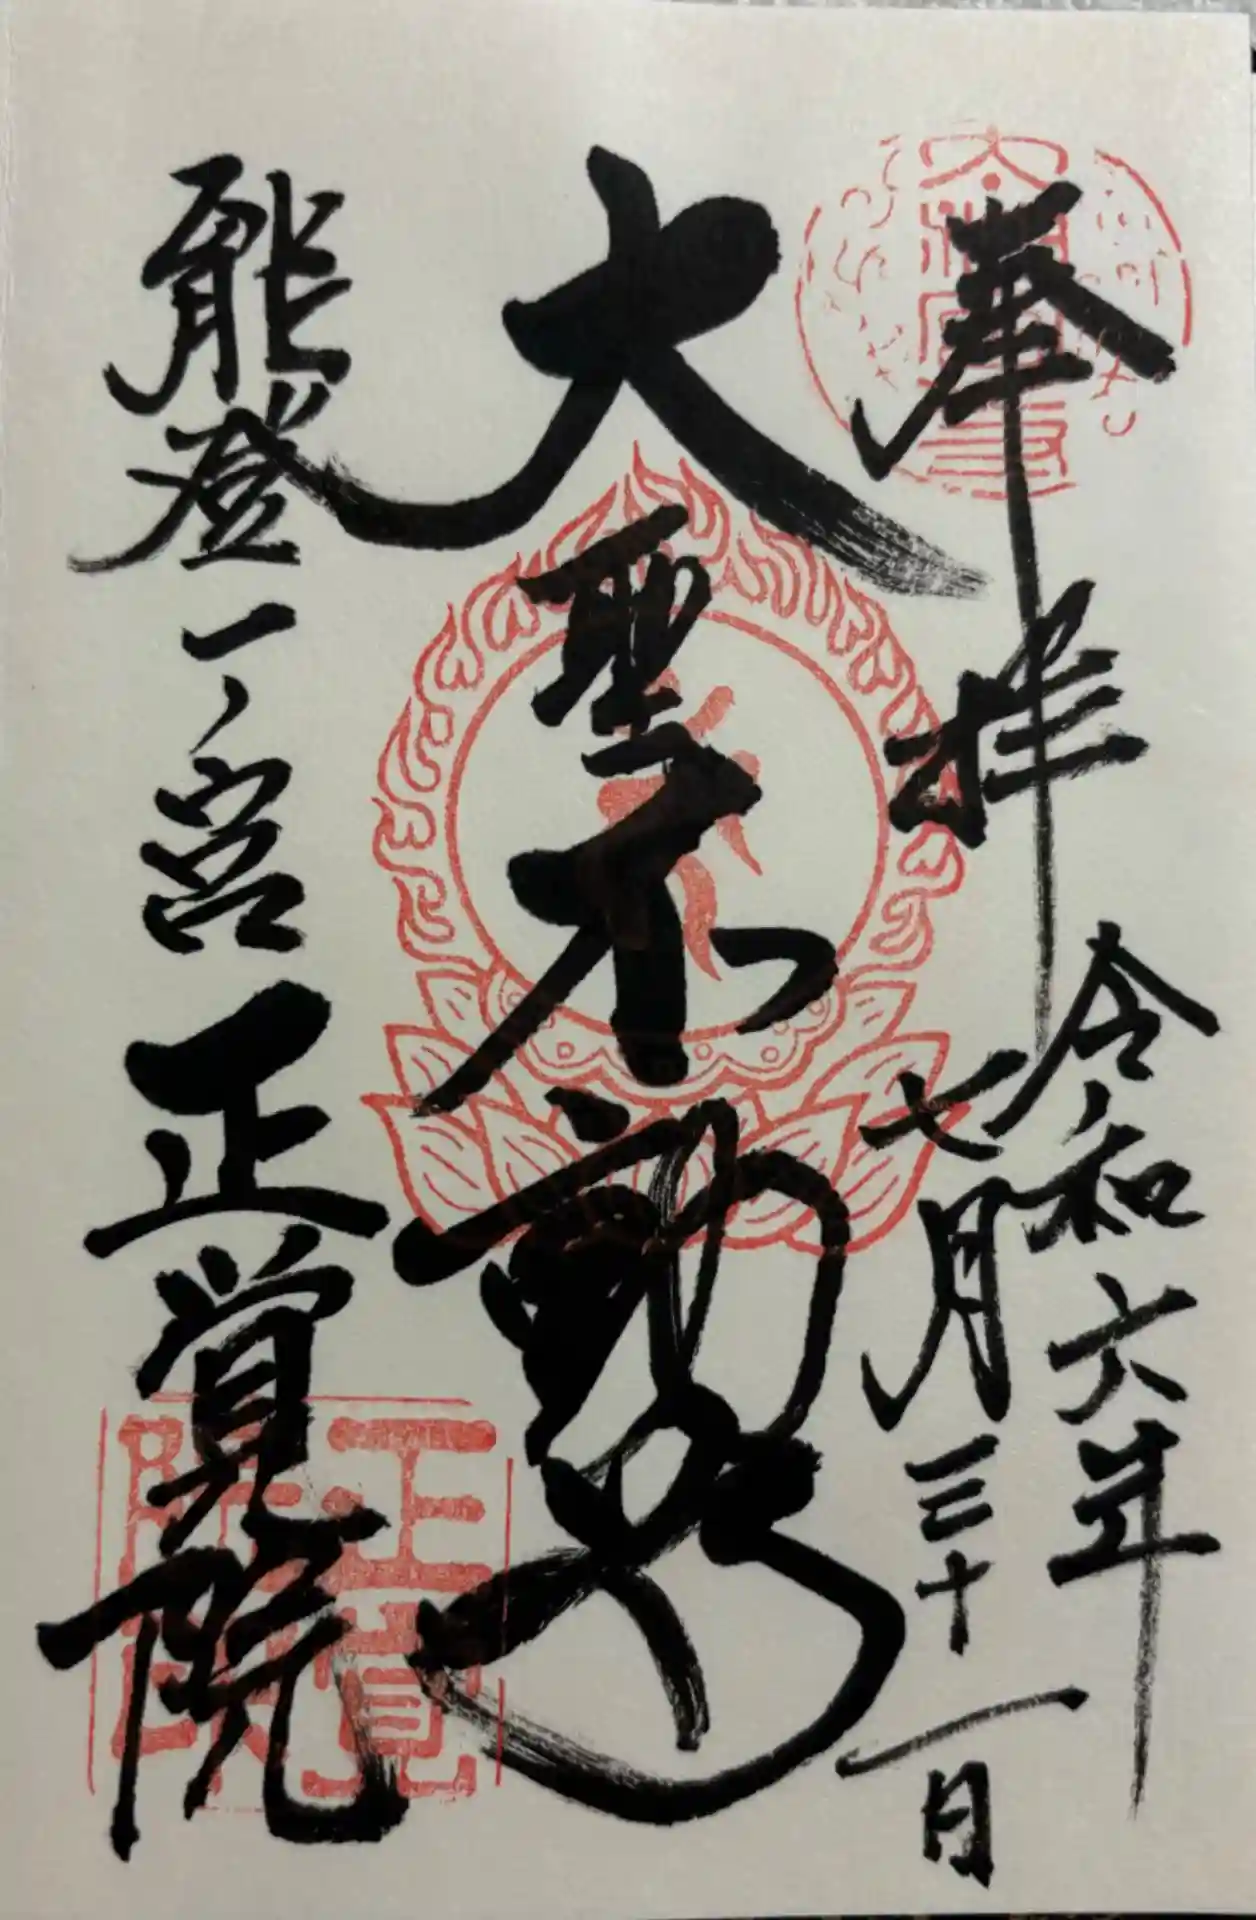 奉拝
令和六年
七月三十一日
大聖不動明
能登一ノ宮
正覚院
正覚院